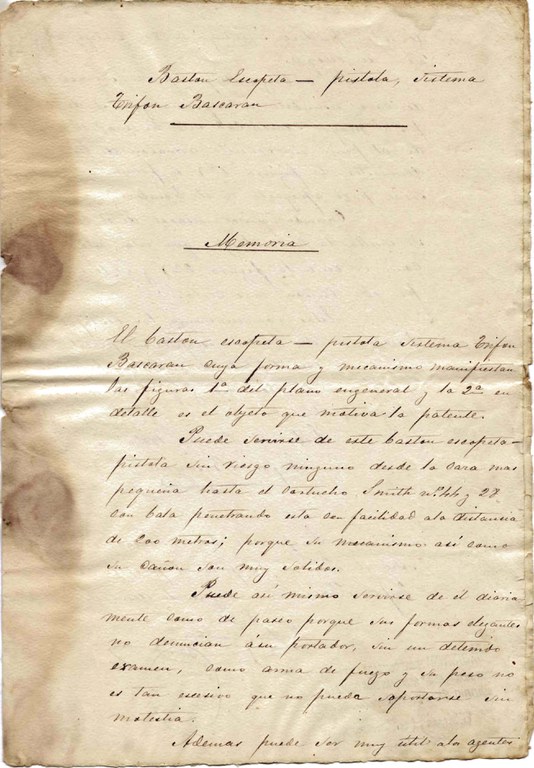 Baston Escopeta — pistola, sistema
Trifon Bascaran
Memoria
El baston escopeta — pistola sistema Trifon
Bascaran cuya forma y mecanismo manifiestan
las figuras 1ª del plano engeneral y la 2ª en
detalle es el objeto que motiva la patente.
Puede servirse de este baston escopeta-
pistola sin riesgo ninguno desde la cara mas
pequeña hasta el cartucho Smith nº 44 y 28
con bala penetrando esta con facilidad ala distancia
de 200 metros; porque su mecanismo así como
su cañon son muy solidos.
Puede así mismo servirse de el diaria
mente como de paseo porque sus formas elegantes
no denuncian ásu portador, sin un detenido
examen, como arma de fuego y su peso no
es tan esesivo que no pueda soportarse sin
molestia.
Ademas puede ser muy util alos agentes